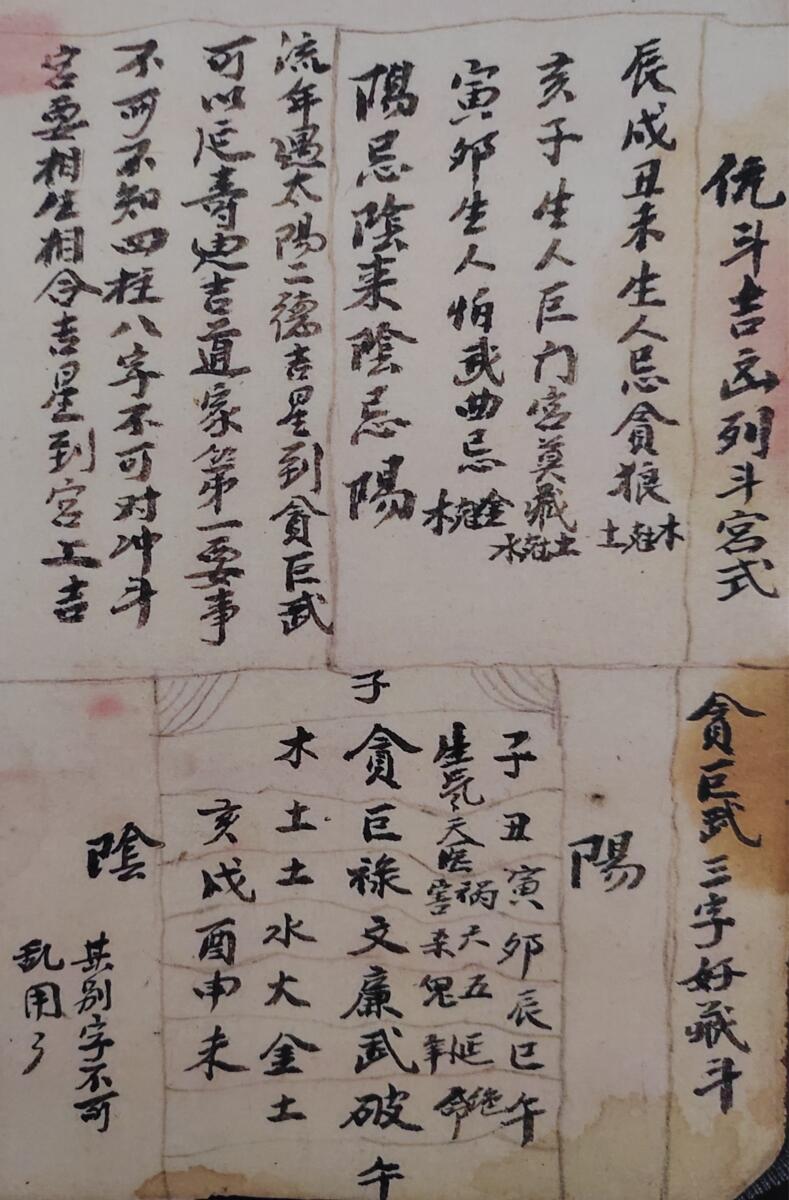 伉斗吉凶列斗宮式
辰戌丑未生人忌貪狼木尅土
亥子生人巨门宮莫藏土尅水
寅卯生人怕武曲忌金尅木
陽忌陰来陰忌陽
流年遇太陽二德吉星到貪巨武
可以延寿迎吉道家第一要事
不可不知四柱八字不可对冲斗
宮要相生相合吉星到宮上吉
貪巨武三字好藏斗
陽
子
子丑寅卯辰巳午
生炁天医禍害天杀五鬼延年絕命
貪巨祿文廉武破
木土土水火金土
亥戌酉申未
午
陰
其别字不可
乱用了